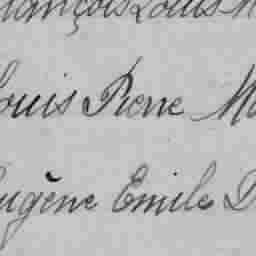 François Louis
Louis Pierre
Eugène Emile